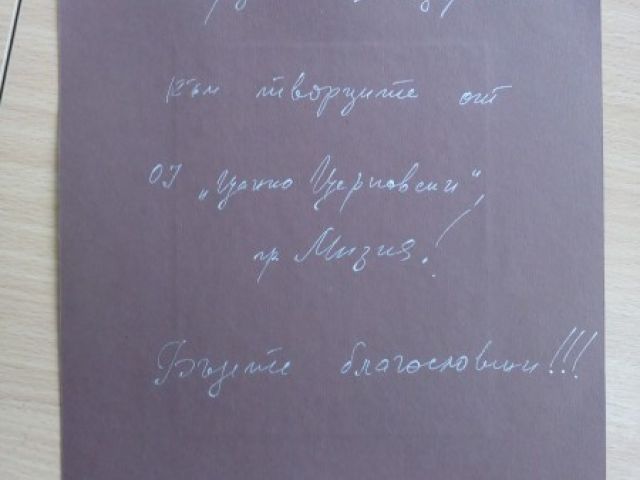 към творците от
ОУ „Цанко Церковски“,
гр. Мизия!
Бъдете благословии!!!